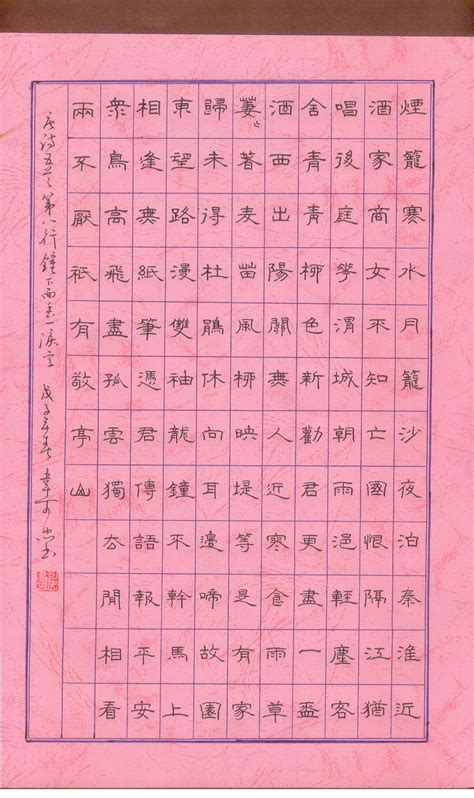 煙籠寒水月籠沙夜泊秦淮近
酒家商女不知亡國恨隔江猶
唱後庭華渭城朝雨浥輕塵客
舍青青柳色新勸君更盡一盃
酒西出陽關無人近寒食雨草
萋〻著麥苗風柳映堤等是有家
歸未得杜鵑休向耳邊啼故園
東望路漫雙袖龍鐘不幹馬上
相逢無紙筆憑君傳語報平安
衆鳥高飛盡孤雲獨去閒相看
兩不厭祗有敬亭山
唐诗五首第八行鐘下面丢一淚字 戊子年春 韋可書